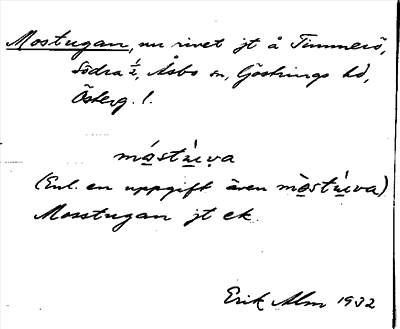 Mostugan, nu rivet jt å Timmerö,
Södra ½, Åsbo sn, Göstrings hd,
Österg. l.
móstú̀va
(Enl. en uppgift även mòstú̀va)
Mosstugan jt ek.
Erik Alm 1932